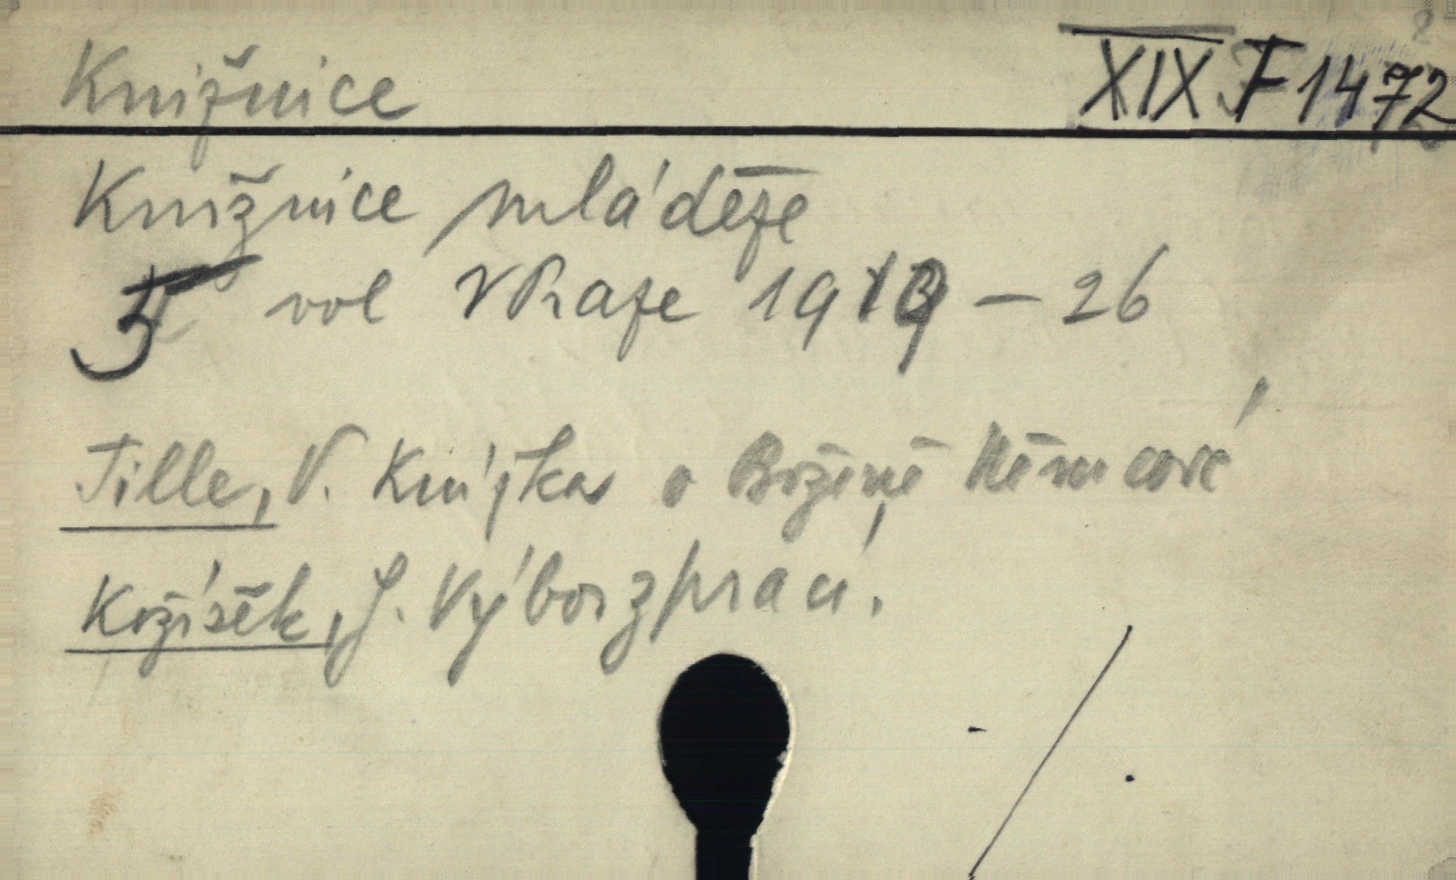 Knižnice XIX F 1472
Knižnice mládeže
5 vol V Praze 1919 – 26
Tille, V. Knížka o Boženě Němcové
Kožíšek, J. Výbor z prací.